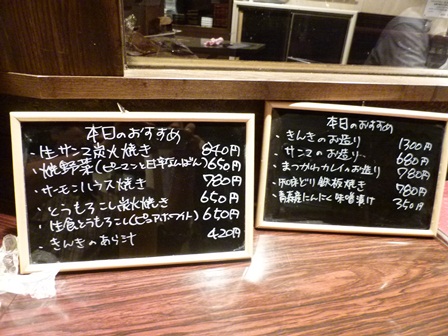 本日のおすすめ
・生サンマ炭火焼き 840円
・焼野菜(ピーマンと甘なんばん) 650円
・サーモンハラス焼き 780円
・とうもろこし炭火焼き 650円
・生食とうもろこし(ピュアホワイト) 650円
・きんきのあら汁 420円
本日のおすすめ
・きんきのお造り 1300円
・サンマのお造り 680円
・まつかわカレイのお造り 780円
・知床どり鉄板焼き 780円
・青森産にんにく味噌漬け 350円